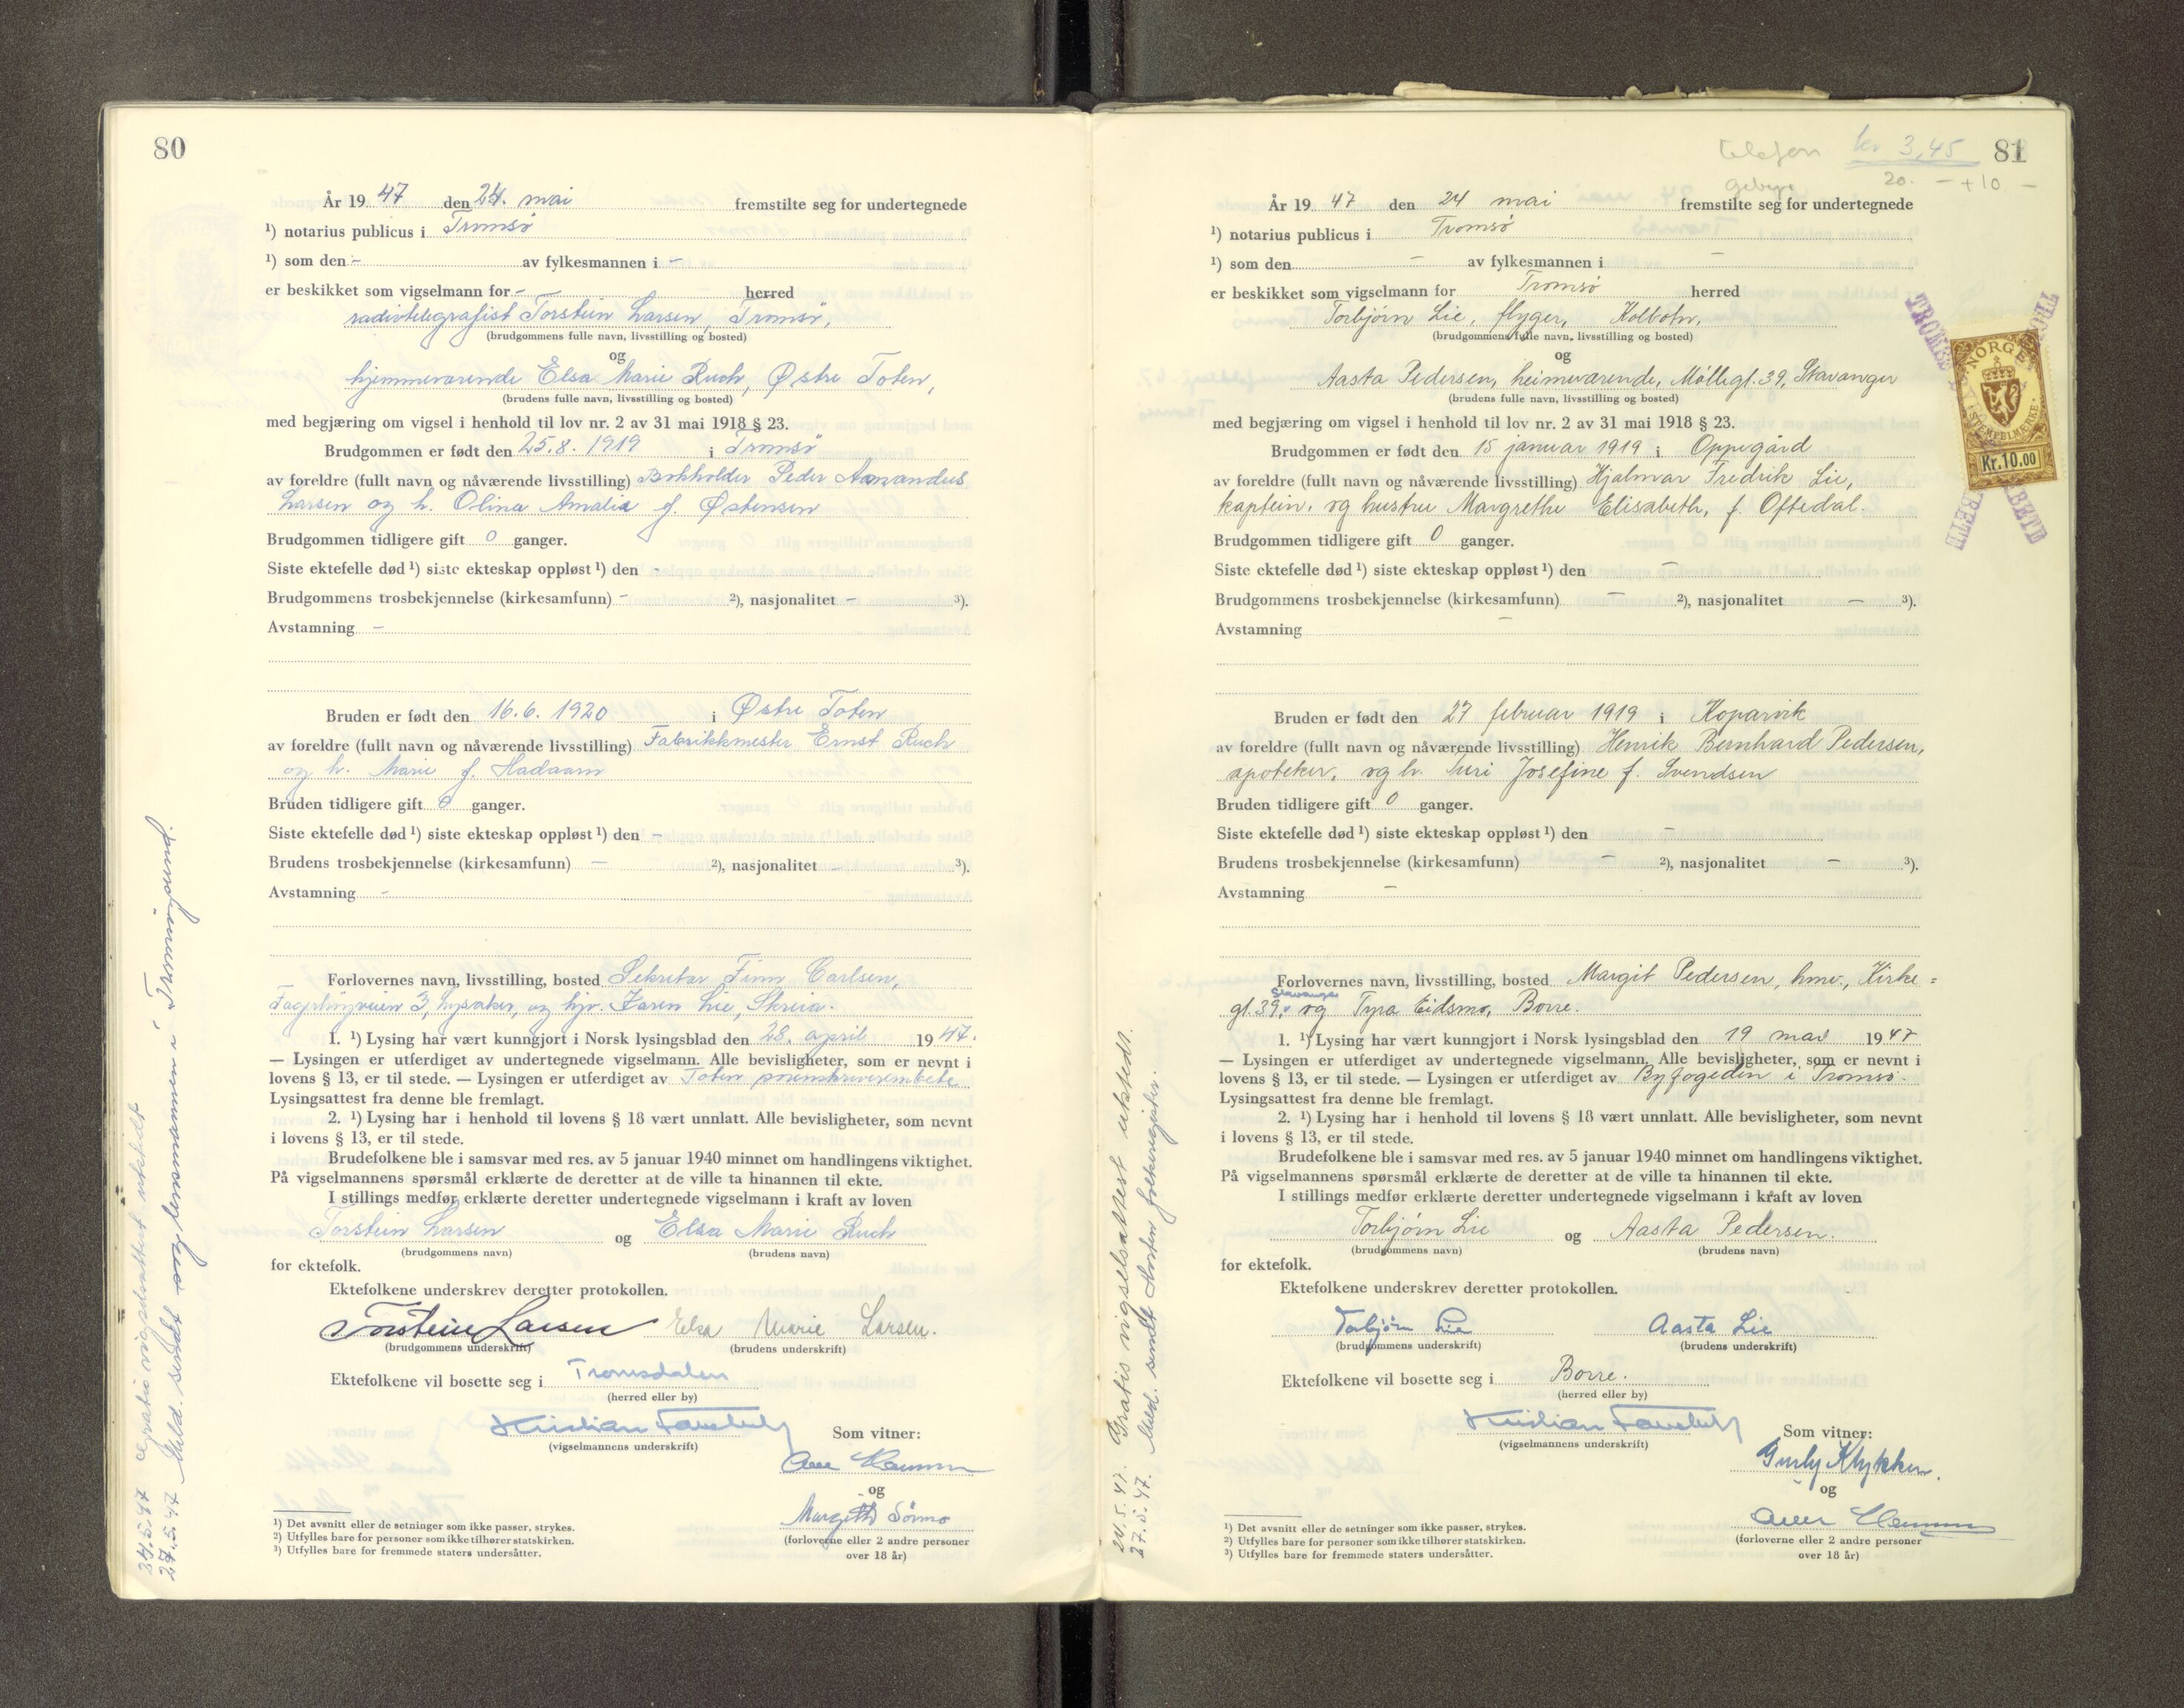 80
År 19 47 den 24. mai fremstilte seg for undertegnede
¹) notarius publicus i Tromsø
¹) som den - av fylkesmannen i -
er beskikket som vigselmann for - herred
radiotelegrafist Torstein Larsen, Tromsø,
(brudgommens fulle navn, livsstilling og bosted)
og
hjemmeværende Elsa Marie Ruch, Østre Toten,
(brudens fulle navn, livsstilling og bosted)
med begjæring om vigsel i henhold til lov nr. 2 av 31 mai 1918 § 23.
Brudgommen er født den 25.8. 1919 i Tromsø
av foreldre (fullt navn og nåværende livsstilling) Bokholder Peder Amandus
Larsen og h. Olina Amalia f. Østensen
Brudgommen tidligere gift 0 ganger.
Siste ektefelle død ¹) siste ekteskap oppløst ¹) den -
Brudgommens trosbekjennelse (kirkesamfunn) - ²), nasjonalitet - ³).
Avstamning -
Bruden er født den 16.6. 1920 i Østre Toten
av foreldre (fullt navn og nåværende livsstilling) Fabrikkmester Ernst Ruch
og h. Marie f. Hadaarn
Bruden tidligere gift 0 ganger.
Siste ektefelle død ¹) siste ekteskap oppløst ¹) den -
Brudens trosbekjennelse (kirkesamfunn) - ²), nasjonalitet - ³).
Avstamning -
Forlovernes navn, livsstilling, bosted Sekretær Finn Carlsen,
3, Lysaker, og hjv. Karen Lie, Skreia.
1. ¹) Lysing har vært kunngjort i Norsk lysingsblad den 28. april 19 47.
— Lysingen er utferdiget av undertegnede vigselmann. Alle bevisligheter, som er nevnt i
lovens § 13, er til stede. — Lysingen er utferdiget av Toten sorenskriverembete
Lysingsattest fra denne ble fremlagt.
2. ¹) Lysing har i henhold til lovens § 18 vært unnlatt. Alle bevisligheter, som nevnt
i lovens § 13, er til stede.
Brudefolkene ble i samsvar med res. av 5 januar 1940 minnet om handlingens viktighet.
På vigselmannens spørsmål erklærte de deretter at de ville ta hinannen til ekte.
I stillings medfør erklærte deretter undertegnede vigselmann i kraft av loven
Torstein Larsen og Elsa Marie Ruch
(brudgommens navn) (brudens navn)
for ektefolk.
Ektefolkene underskrev deretter protokollen.
Torstein Larsen Elsa Marie Larsen.
(brudgommens underskrift) (brudens underskrift)
Ektefolkene vil bosette seg i Tromsdalen
(herred eller by)
Kristian
(vigselmannens underskrift)
Som vitner:
og
Margith Sörmo
(forloverne eller 2 andre personer
over 18 år)
¹) Det avsnitt eller de setninger som ikke passer, strykes.
²) Utfylles bare for personer som ikke tilhører statskirken.
³) Utfylles bare for fremmede staters undersåtter.
24.5.47 gratis vigselsattest utstedt
27.5.47 Meld. sendt lensmannen i Tromsøysund.
81
telefon kr 3,45
gebyr 20. - + 10 -
År 19 47 den 24 mai fremstilte seg for undertegnede
¹) notarius publicus i Tromsø
¹) som den - av fylkesmannen i -
er beskikket som vigselmann for Tromsø herred
Torbjørn Lie, flyger, Kolbotn,
(brudgommens fulle navn, livsstilling og bosted)
og
Aasta Pedersen, heimeværende, Møllegt. 39, Stavanger
(brudens fulle navn, livsstilling og bosted)
med begjæring om vigsel i henhold til lov nr. 2 av 31 mai 1918 § 23.
Brudgommen er født den 15 januar 1919 i Oppegård
av foreldre (fullt navn og nåværende livsstilling) Hjalmar Fredrik Lie,
kaptein, og hustru Margrethe Elisabeth, f. Oftedal.
Brudgommen tidligere gift 0 ganger.
Siste ektefelle død ¹) siste ekteskap oppløst ¹) den -
Brudgommens trosbekjennelse (kirkesamfunn) - ²), nasjonalitet - ³).
Avstamning -
Bruden er født den 27 februar 1919 i Kopervik
av foreldre (fullt navn og nåværende livsstilling) Henrik Bernhard Pedersen,
apoteker, og h. Turi Josefine f. Svendsen
Bruden tidligere gift 0 ganger.
Siste ektefelle død ¹) siste ekteskap oppløst ¹) den -
Brudens trosbekjennelse (kirkesamfunn) - ²), nasjonalitet - ³).
Avstamning -
Forlovernes navn, livsstilling, bosted Margit Pedersen, hmv., Kirke=
gt. 39, Stavanger og Tyra Eidsmo, Borre.
1. ¹) Lysing har vært kunngjort i Norsk lysingsblad den 19 mai 19 47
— Lysingen er utferdiget av undertegnede vigselmann. Alle bevisligheter, som er nevnt i
lovens § 13, er til stede. — Lysingen er utferdiget av Byfogeden i Tromsø.
Lysingsattest fra denne ble fremlagt.
2. ¹) Lysing har i henhold til lovens § 18 vært unnlatt. Alle bevisligheter, som nevnt
i lovens § 13, er til stede.
Brudefolkene ble i samsvar med res. av 5 januar 1940 minnet om handlingens viktighet.
På vigselmannens spørsmål erklærte de deretter at de ville ta hinannen til ekte.
I stillings medfør erklærte deretter undertegnede vigselmann i kraft av loven
Torbjørn Lie og Aasta Pedersen.
(brudgommens navn) (brudens navn)
for ektefolk.
Ektefolkene underskrev deretter protokollen.
Torbjørn Lie Aasta Lie
(brudgommens underskrift) (brudens underskrift)
Ektefolkene vil bosette seg i Borre.
(herred eller by)
Kristian
(vigselmannens underskrift)
Som vitner:
Gurly Klykken.
og
(forloverne eller 2 andre personer
over 18 år)
¹) Det avsnitt eller de setninger som ikke passer, strykes.
²) Utfylles bare for personer som ikke tilhører statskirken.
³) Utfylles bare for fremmede staters undersåtter.
24.5.47. Gratis vigselsattest utstedt.
27.5.47. Meld. sendt Horten folkeregister.
NORGE
STEMPELMERKE
Kr.10.00